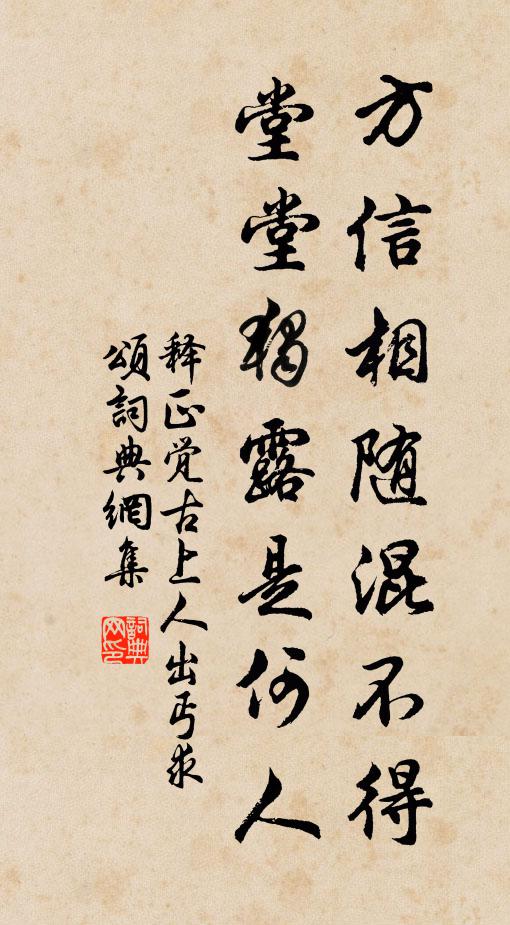 方信相随混不得
堂堂独露是何人
释正觉古上人出丐求
頌詞典網集
詞典网印